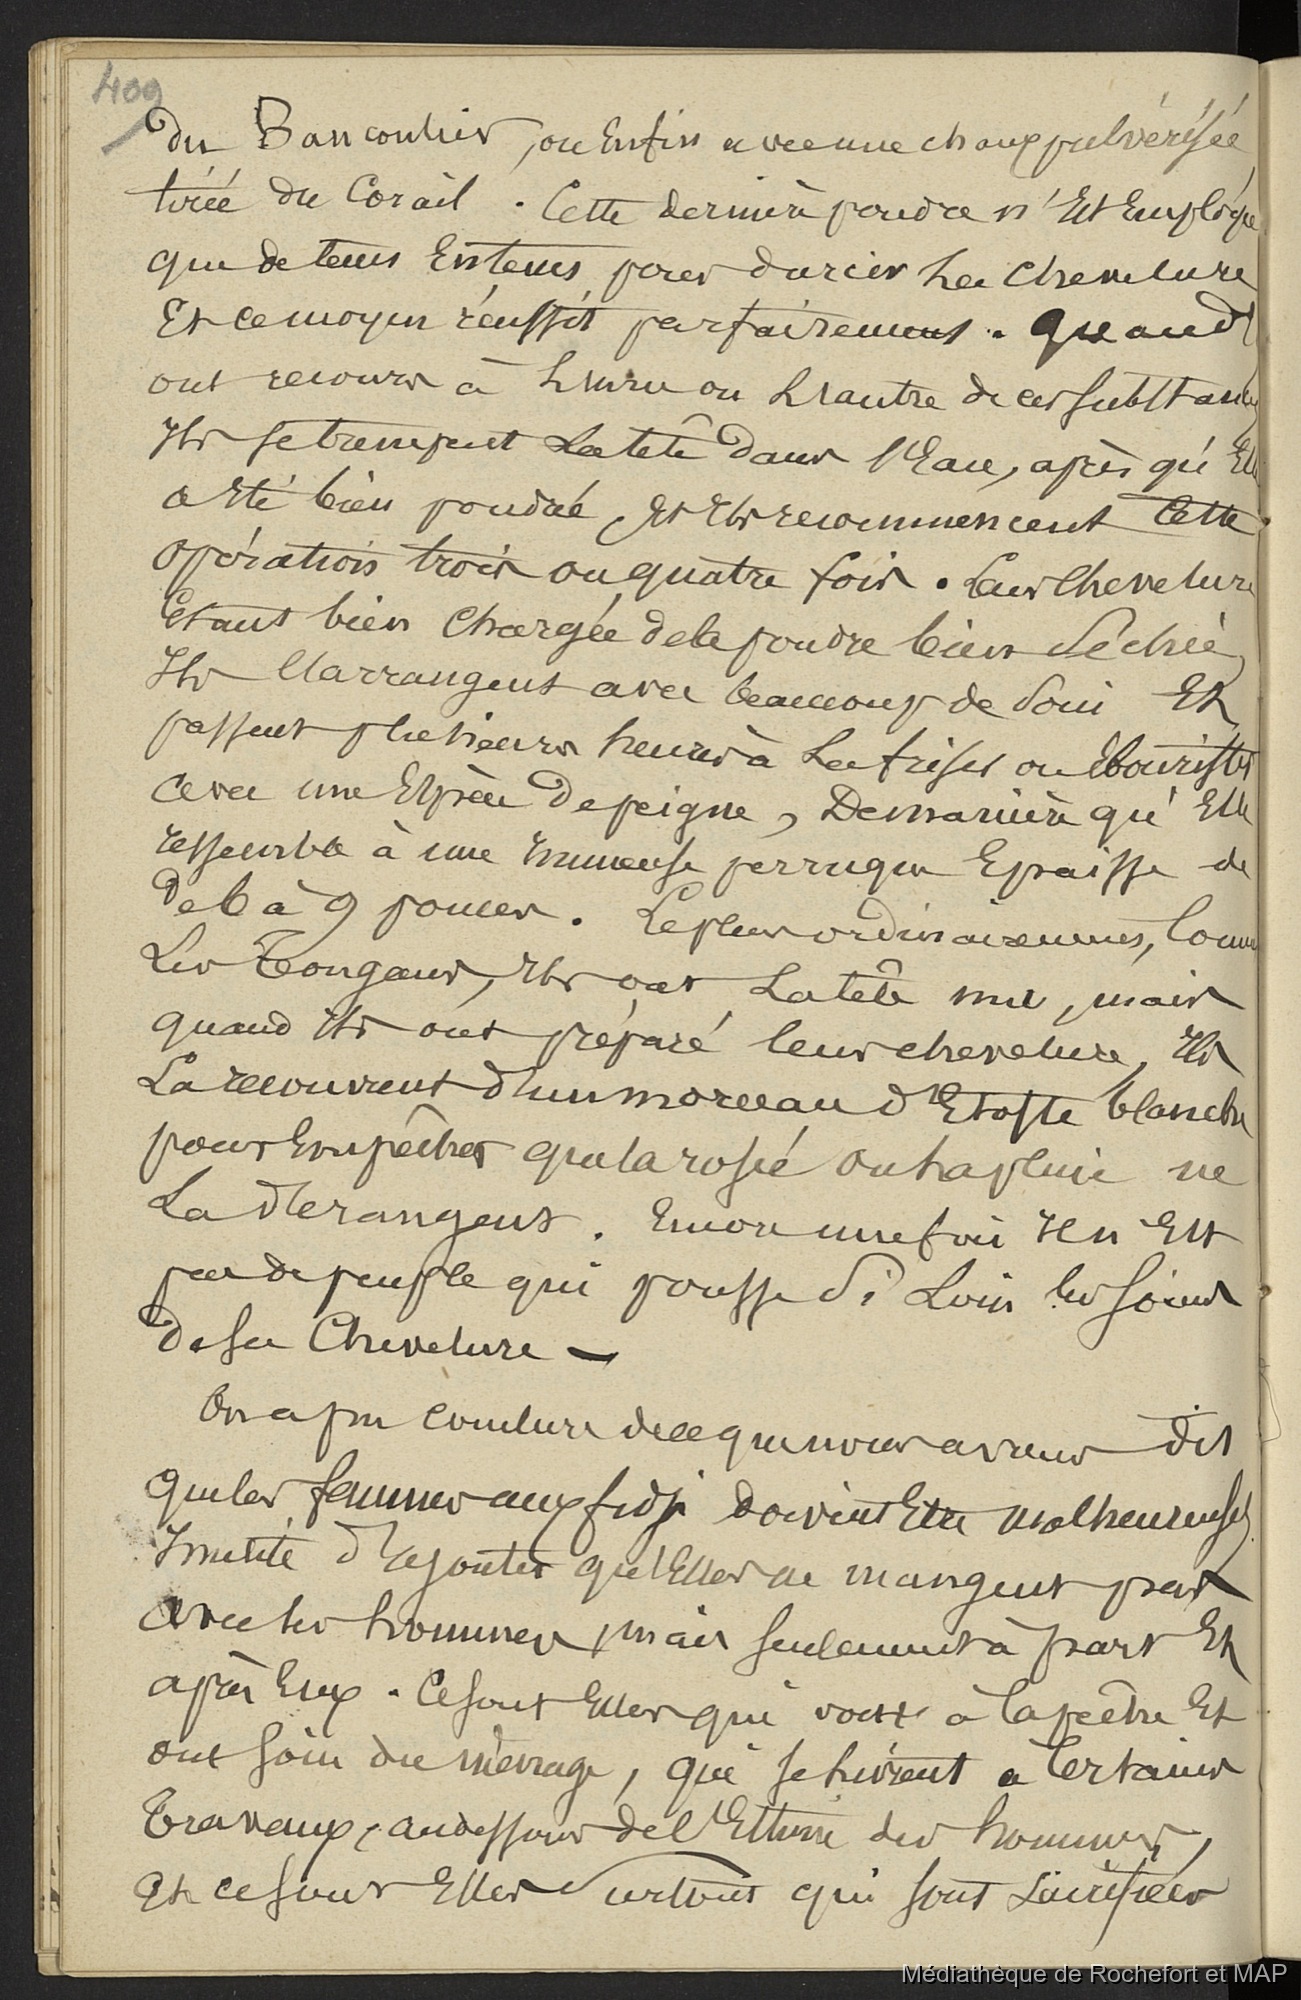 409
du Bancoulier, ou Enfin avec une chaux pulvérisée
tirée du Corail. Cette dernière poudre n'Est Employée
que de tems En tems pour durcir La chevelure
Et ce moyen réussit parfaitement. quand
ont recours à L'une ou L'autre de ces substances
Ils se trempent La tête dans l'Eau, après qu'Elle
a Eté bien poudrée, Et Ils recommencent Cette
opération trois ou quatre fois. Leur Chevelure
Etant bien Chargée de la poudre bien séchée,
Ils L'arrangent avec beaucoup de soin Et
passent plusieurs heures à La friser ou Ebouriffer
avec une Espèce de peigne, De manière qu'Elle
ressemble à une Immense perruque Epaisse de
de 6 à 9 pouces. Le plus ordinairement, Comme
Les Tongans, Ils ont La tête nue, mais
quand Ils ont préparé leur chevelure, Ils
La recouvrent d'un morceau d'Etoffe blanche
pour Empêcher que la rosée ou La pluie ne
La dérangent. Encore une fois Il n'Est
pas de peuple qui pousse si Loin les soins
de sa Chevelure —
On a pu conclure de ce que nous avons dit
que les femmes aux fidji doivent Etre malheureuses.
Inutile d'ajouter qu'Elles ne mangent pas
avec les hommes, mais seulement à part Et
après Eux. Ce sont Elles qui vont à la pêche Et
ont soin du ménage, qui se livrent a Certains
Travaux, au dessous de l'Estime des hommes,
Et ce sont Elles surtout qui sont sacrifiées
Médiathèque de Rochefort et MAP